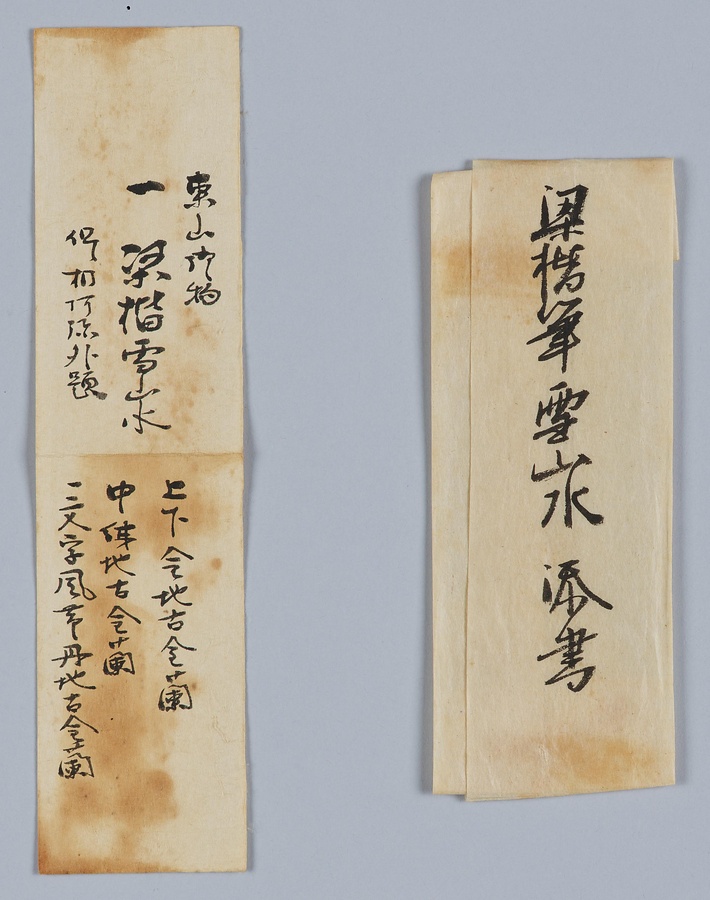 東山御物
一 梁楷雪山水
但 相阿弥外題
上下 地古金蘭
中 地古金蘭
一文字風帯丹地古金蘭
梁楷筆雪山水 添書